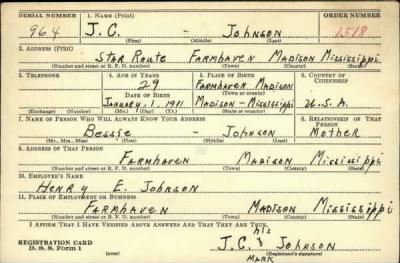 SERIAL NUMBER 1. NAME (Print) ORDER NUMBER
964 J.C. - Johnson 1518
(First) (Middle) (Last)
2. ADDRESS (Print)
Star Route Farmhaven Madison Mississippi
(Number and street or R. F. D. number) (Town) (County) (State)
3. TELEPHONE 4. AGE IN YEARS 5. PLACE OF BIRTH 6. COUNTRY OF CITIZENSHIP
29 Farmhaven Madison
DATE OF BIRTH (Town or county)
January 1, 1911 Madison - Mississippi U.S.A.
(Exchange) (Number) (Mo.) (Day) (Yr.) (State or country)
7. NAME OF PERSON WHO WILL ALWAYS KNOW YOUR ADDRESS 8. RELATIONSHIP OF THAT PERSON
Bessie - Johnson Mother
(Mr., Mrs., Miss) (First) (Middle) (Last)
9. ADDRESS OF THAT PERSON
Farmhaven Madison Mississippi
(Number and street or R. F. D. number) (Town) (County) (State)
10. EMPLOYER'S NAME
Henry E. Johnson
11. PLACE OF EMPLOYMENT OR BUSINESS
Farmhaven Madison Mississippi
(Number and street or R. F. D. number) (Town) (County) (State)
I AFFIRM THAT I HAVE VERIFIED ABOVE ANSWERS AND THAT THEY ARE TRUE.
his
REGISTRATION CARD J.C. x Johnson
D. S. S. Form 1 (Registrant's signature)
mark